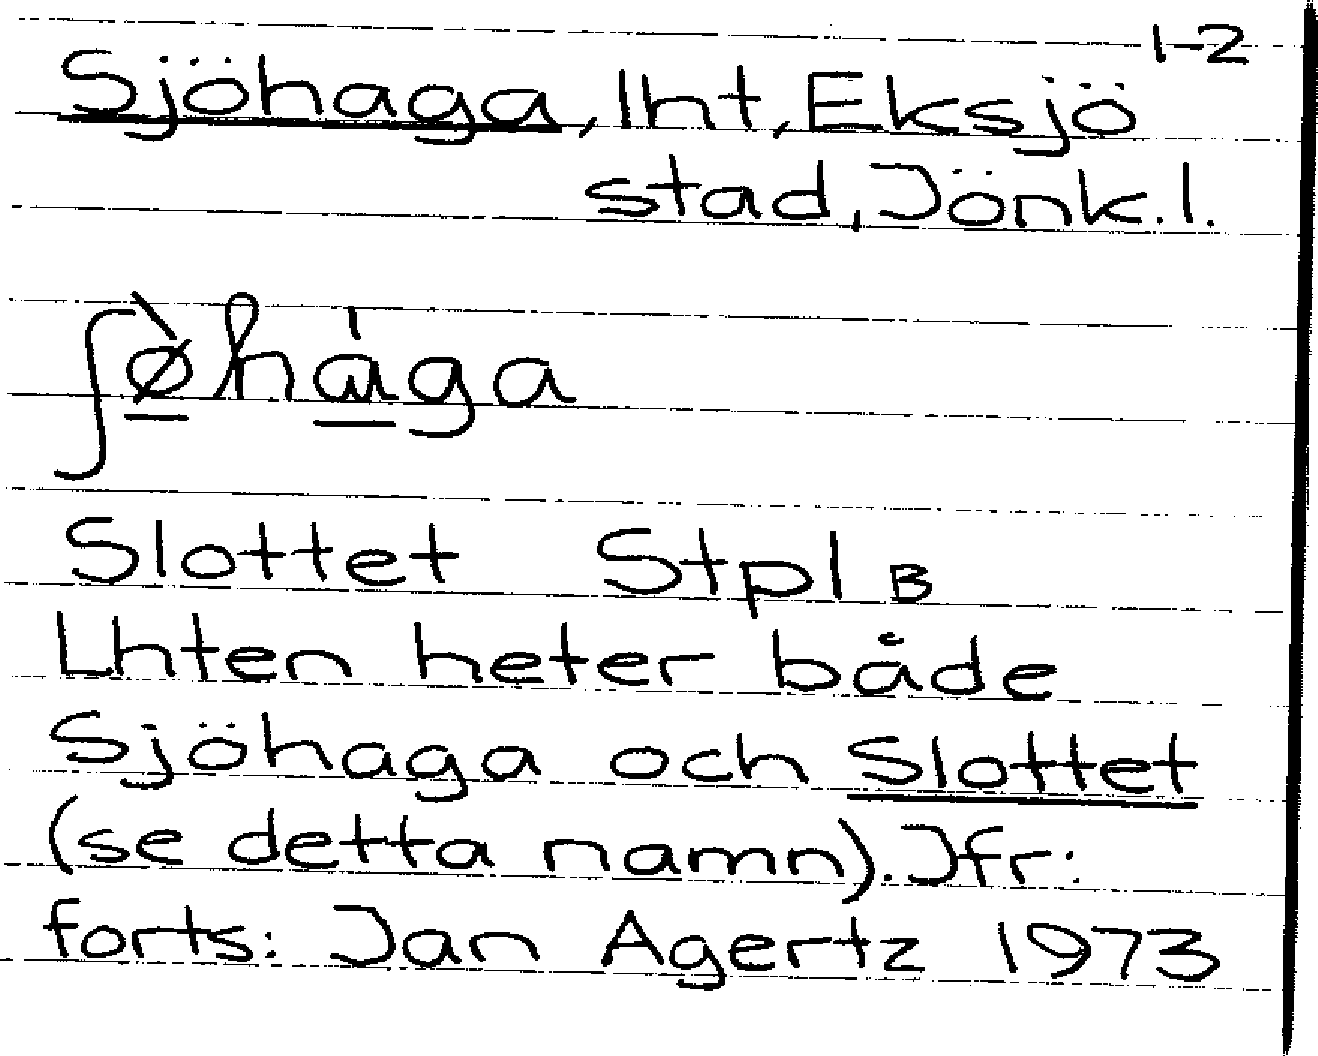 1-2
Sjöhaga, lht, Eksjö
stad, Jönk.l.
ʃø̀hága
Slottet Stpl B
Lhten heter både
Sjöhaga och Slottet
(se detta namn). Jfr:
forts: Jan Agertz 1973